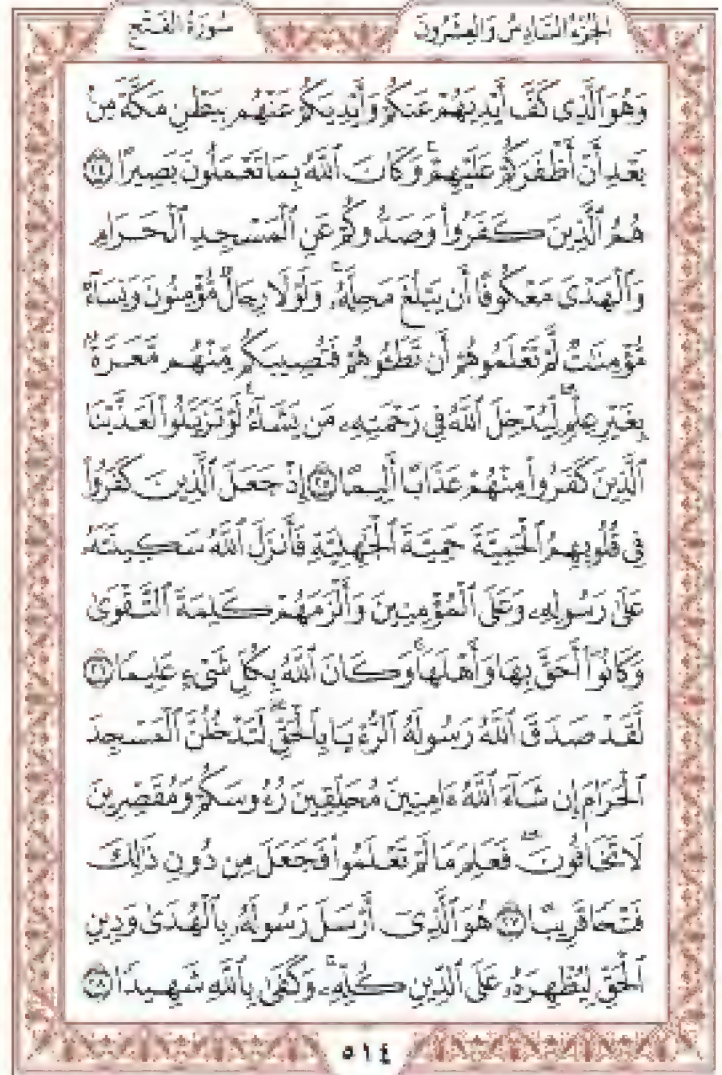 سُورَةُ الفَتْحِ
الجُزْءُ السَّادِسُ وَالعِشْرُونَ
وَهُوَ ٱلَّذِى كَفَّ أَيْدِيَهُمْ عَنكُمْ وَأَيْدِيَكُمْ عَنْهُم بِبَطْنِ مَكَّةَ مِنۢ
بَعْدِ أَنْ أَظْفَرَكُمْ عَلَيْهِمْ ۚ وَكَانَ ٱللَّهُ بِمَا تَعْمَلُونَ بَصِيرًا ٢٤
هُمُ ٱلَّذِينَ كَفَرُوا۟ وَصَدُّوكُمْ عَنِ ٱلْمَسْجِدِ ٱلْحَرَامِ
وَٱلْهَدْىَ مَعْكُوفًا أَن يَبْلُغَ مَحِلَّهُۥ ۚ وَلَوْلَا رِجَالٌ مُّؤْمِنُونَ وَنِسَآءٌ
مُّؤْمِنَٰتٌ لَّمْ تَعْلَمُوهُمْ أَن تَطَـُٔوهُمْ فَتُصِيبَكُم مِّنْهُم مَّعَرَّةٌۢ
بِغَيْرِ عِلْمٍ ۖ لِّيُدْخِلَ ٱللَّهُ فِى رَحْمَتِهِۦ مَن يَشَآءُ ۚ لَوْ تَزَيَّلُوا۟ لَعَذَّبْنَا
ٱلَّذِينَ كَفَرُوا۟ مِنْهُمْ عَذَابًا أَلِيمًا ٢٥ إِذْ جَعَلَ ٱلَّذِينَ كَفَرُوا۟
فِى قُلُوبِهِمُ ٱلْحَمِيَّةَ حَمِيَّةَ ٱلْجَٰهِلِيَّةِ فَأَنزَلَ ٱللَّهُ سَكِينَتَهُۥ
عَلَىٰ رَسُولِهِۦ وَعَلَى ٱلْمُؤْمِنِينَ وَأَلْزَمَهُمْ كَلِمَةَ ٱلتَّقْوَىٰ
وَكَانُوٓا۟ أَحَقَّ بِهَا وَأَهْلَهَا ۚ وَكَانَ ٱللَّهُ بِكُلِّ شَىْءٍ عَلِيمًا ٢٦
لَّقَدْ صَدَقَ ٱللَّهُ رَسُولَهُ ٱلرُّءْيَا بِٱلْحَقِّ ۖ لَتَدْخُلُنَّ ٱلْمَسْجِدَ
ٱلْحَرَامَ إِن شَآءَ ٱللَّهُ ءَامِنِينَ مُحَلِّقِينَ رُءُوسَكُمْ وَمُقَصِّرِينَ
لَا تَخَافُونَ ۖ فَعَلِمَ مَا لَمْ تَعْلَمُوا۟ فَجَعَلَ مِن دُونِ ذَٰلِكَ
فَتْحًا قَرِيبًا ٢٧ هُوَ ٱلَّذِىٓ أَرْسَلَ رَسُولَهُۥ بِٱلْهُدَىٰ وَدِينِ
ٱلْحَقِّ لِيُظْهِرَهُۥ عَلَى ٱلدِّينِ كُلِّهِۦ ۚ وَكَفَىٰ بِٱللَّهِ شَهِيدًا ٢٨
٥١٤